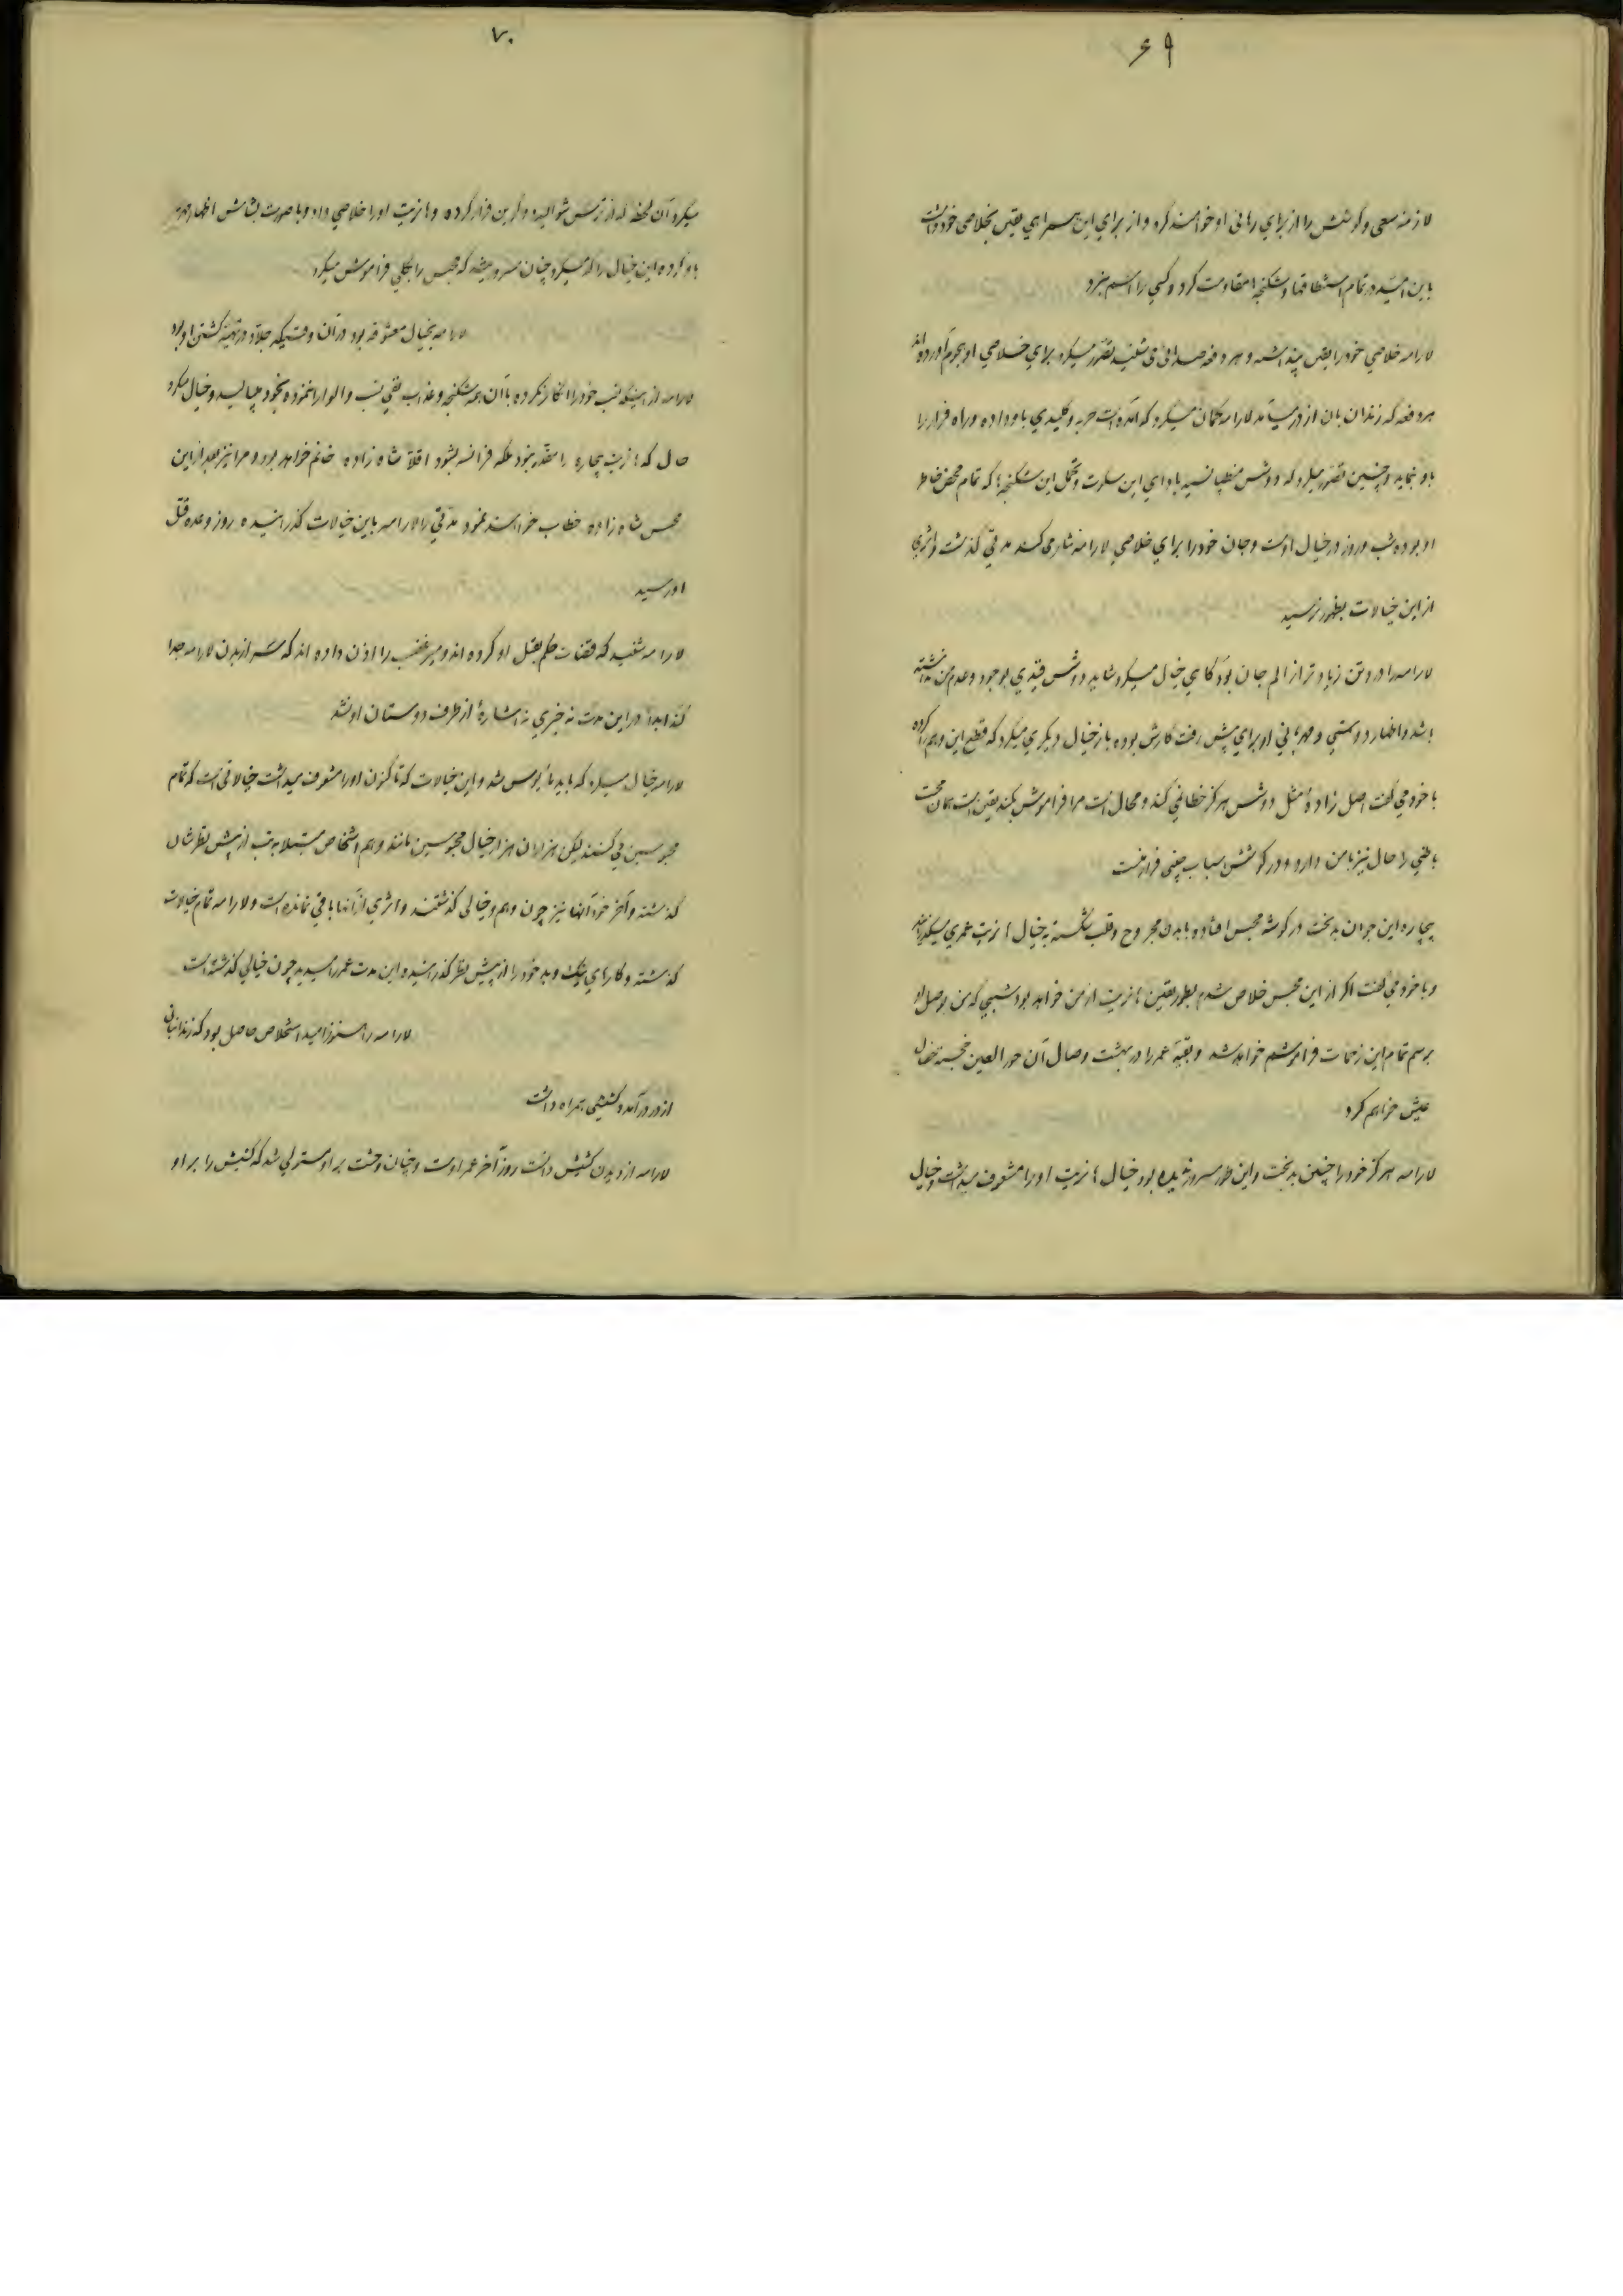 ۶۹
لازمه سعی و کوشش را از برای رهائی او خواهند کرد و از برای این همراهی یقین بخلاصی خود داشت
باین امید در تمام استنطاقها و شکنجه‌ها مقاومت کرد و کسی را اسم نبرد
لارامه خلاصی خود را یقین پنداشته و هر دفعه صدائی می‌شنید تصور میکرد برای خلاصی او هجوم آورده‌اند
هر دفعه که زندان بان از در میآمد لارامه گمان میکرد که آمده است حربه و کلیدی باو داده و راه فرار را
باو بنماید و چنین تصور میکرد که دوشس منطپانسیه پاداش این سکوت و تحمل این شکنجه‌ها که تمام محض خاطر
او بوده شب و روز در خیال اوست و جان خود را برای خلاصی لارامه نثار می‌کند مدتی گذشت و اثری
از این خیالات بظهور نرسید
لارامه را درد تن زیادتر از الم جان بود گاهی خیال میکرد شاید دوشس قیدی بوجود و عدم من نداشته
باشد و اظهار دوستی و مهربانی او برای پیش رفت کارش بوده باز خیال دیگری میکرد که قطع این وهم را کرده
با خود می‌گفت اصل زاده مثل دوشس هرگز خطا نمی کند و محال است مرا فراموش بکند یقین است همان محبت
باطنی را حال نیز با من دارد و در کوشش اسباب چینی فرار منست
بیچاره این جوان بدبخت در گوشه محبس افتاده با بدن مجروح و قلب شکسته به خیال ماریت عمری میگذراند
و با خود می گفت اگر از این محبس خلاص شدم بطور یقین ماریت از من خواهد بود شبی که من بوصل او
برسم تمام این زحمات فراموشم خواهد شد و بقیه عمر را در بهشت وصال آن حور العین خجسته خصال
عیش خواهم کرد
لارامه هرگز خود را چنین بدبخت و این طور سیه روز ندیده بود خیال ماریت او را مشعوف میداشت و خیال
۷۰
میکرد آن لحظه که از ترس شوالیه فرار کرده و ماریت او را خلاصی داد و با صورت بشاش اظهار مهر
باو کرده این خیال را که میکرد چنان مسرور میشد که محبس را بکلی فراموش میکرد
لارامه بخیال معشوقه بود در آن وقتیکه جلاد در تهیه کشتن او بود
لارامه از اینکه نسب خود را انکار نکرده با آن همه شکنجه و عذاب نفی نسب والوا را ننموده بخود میبالید و خیال میکرد
حال که ماریت بیچاره را مقدر نبود ملکه فرانسه بشود اقلا شاه زاده خانم خواهد بود و مرا نیز بعد از این
محبس شاه زاده خطاب خواهند نمود مدتی را لارامه باین خیالات گذرانیده روز وعده قتل
او رسید
لارامه شنید که قضات حکم بقتل او کرده اند و میر غضب را اذن داده اند که سر از بدن لارامه جدا
کند ابدا در این مدت نه خبری نه اشاره از طرف دوستان او نشد
لارامه خیال میکرد که باید مأیوس شد و این خیالات که تاکنون او را مشعوف میداشت خیالاتی است که تمام
محبوسین می کنند لیکن هزاران هزار خیال محبوسین مانند وهم اشخاص مبتلا به تب از پیش نظرشان
گذشته و آخر خود آنها نیز چون وهم و خیالی گذشتند و اثری از آنها باقی نمانده است و لارامه تمام خیالات
گذشته و کارهای نیک و بد خود را از پیش نظر گذرانیده این مدت عمر را میدید چون خیالی گذشته است
لارامه را هنوز امید استخلاص حاصل بود که زندانبان
از در درآمد و کشیشی همراه داشت
لارامه از دیدن کشیش دانست روز آخر عمر اوست و چنان وحشت بر او مستولی شد که کشیش را بر او